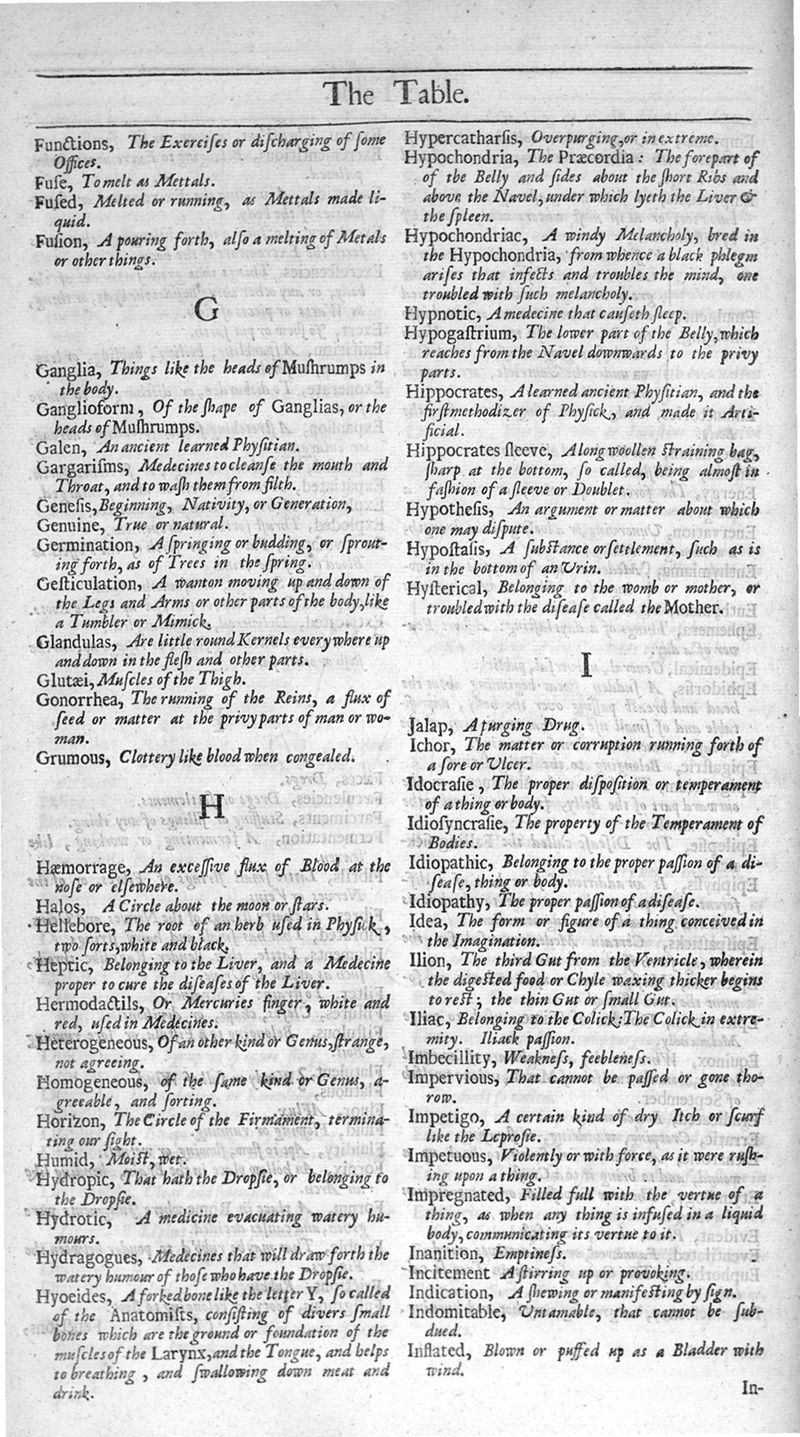 The Table.
Functions, The Exerciſes or diſcharging of ſome
Offices.
Fuſe, To melt as Mettals.
Fuſed, Melted or running, as Mettals made li-
quid.
Fuſion, A pouring forth, alſo a melting of Metals
or other things.
G
Ganglia, Things like the heads of Muſhrumps in
the body.
Ganglioform, Of the ſhape of Ganglias, or the
heads of Muſhrumps.
Galen, An ancient learned Phyſitian.
Gargariſms, Medecines to cleanſe the mouth and
Throat, and to waſh them from filth.
Geneſis, Beginning, Nativity, or Generation,
Genuine, True or natural.
Germination, A ſpringing or budding, or ſprout-
ing forth, as of Trees in the ſpring.
Geſticulation, A wanton moving up and down of
the Legs and Arms or other parts of the body, like
a Tumbler or Mimick.
Glandulas, Are little round Kernels every where up
and down in the fleſh and other parts.
Glutæi, Muſcles of the Thigh.
Gonorrhea, The running of the Reins, a flux of
ſeed or matter at the privy parts of man or wo-
man.
Grumous, Clottery like blood when congealed.
H
Hæmorrage, An exceſſive flux of Blood at the
noſe or elſewhere.
Halos, A Circle about the moon or ſtars.
Hellebore, The root of an herb uſed in Phyſick,
two ſorts, white and black.
Heptic, Belonging to the Liver, and a Medecine
proper to cure the diſeaſes of the Liver.
Hermodactils, Or Mercuries finger, white and
red, uſed in Medecines.
Heterogeneous, Of an other kind or Genus, ſtrange,
not agreeing.
Homogeneous, of the ſame kind or Genus, a-
greeable, and ſorting.
Horizon, The Circle of the Firmament, termina-
ting our ſight.
Humid, Moiſt, wet.
Hydropic, That hath the Dropſie, or belonging to
the Dropſie.
Hydrotic, A medicine evacuating watery hu-
mours.
Hydragogues, Medecines that will draw forth the
watery humour of thoſe who have the Dropſie.
Hyoeides, A forked bone like the letter Y, ſo called
of the Anatomiſts, conſiſting of divers ſmall
bones which are the ground or foundation of the
muſcles of the Larynx, and the Tongue, and helps
to breathing, and ſwallowing down meat and
drink.
Hypercatharſis, Overpurging, or in extreme.
Hypochondria, The Præcordia: The forepart of
of the Belly and ſides about the ſhort Ribs and
above the Navel, under which lyeth the Liver &
the ſpleen.
Hypochondriac, A windy Melancholy, bred in
the Hypochondria, from whence a black phlegm
ariſes that infects and troubles the mind, one
troubled with ſuch melancholy.
Hypnotic, A medecine that cauſeth ſleep.
Hypogaſtrium, The lower part of the Belly, which
reaches from the Navel downwards to the privy
parts.
Hippocrates, A learned ancient Phyſitian, and the
firſt methodizer of Phyſick, and made it Arti-
ficial.
Hippocrates ſleeve, A long woollen ſtraining bag,
ſharp at the bottom, ſo called, being almoſt in
faſhion of a ſleeve or Doublet.
Hypotheſis, An argument or matter about which
one may diſpute.
Hypoſtaſis, A ſubſtance or ſettlement, ſuch as is
in the bottom of an Urin.
Hyſterical, Belonging to the womb or mother, or
troubled with the diſeaſe called the Mother.
I
Jalap, A purging Drug.
Ichor, The matter or corruption running forth of
a ſore or Ulcer.
Idocraſie, The proper diſpoſition or temperament
of a thing or body.
Idioſyncraſie, The property of the Temperament of
Bodies.
Idiopathic, Belonging to the proper paſſion of a di-
ſeaſe, thing or body.
Idiopathy, The proper paſſion of a diſeaſe.
Idea, The form or figure of a thing conceived in
the Imagination.
Ilion, The third Gut from the Ventricle, wherein
the digeſted food or Chyle waxing thicker begins
to reſt; the thin Gut or ſmall Gut.
Iliac, Belonging to the Colick: The Colick in extre-
mity. Iliack paſſion.
Imbecillity, Weakneſs, feebleneſs.
Impervious, That cannot be paſſed or gone tho-
row.
Impetigo, A certain kind of dry Itch or ſcurf
like the Leproſie.
Impetuous, Violently or with force, as it were ruſh-
ing upon a thing.
Impregnated, Filled full with the vertue of a
thing, as when any thing is infuſed in a liquid
body, communicating its vertue to it.
Inanition, Emptineſs.
Incitement A ſtirring up or provoking.
Indication, A ſhewing or manifeſting by ſign.
Indomitable, Untamable, that cannot be ſub-
dued.
Inflated, Blown or puffed up as a Bladder with
wind.
In-